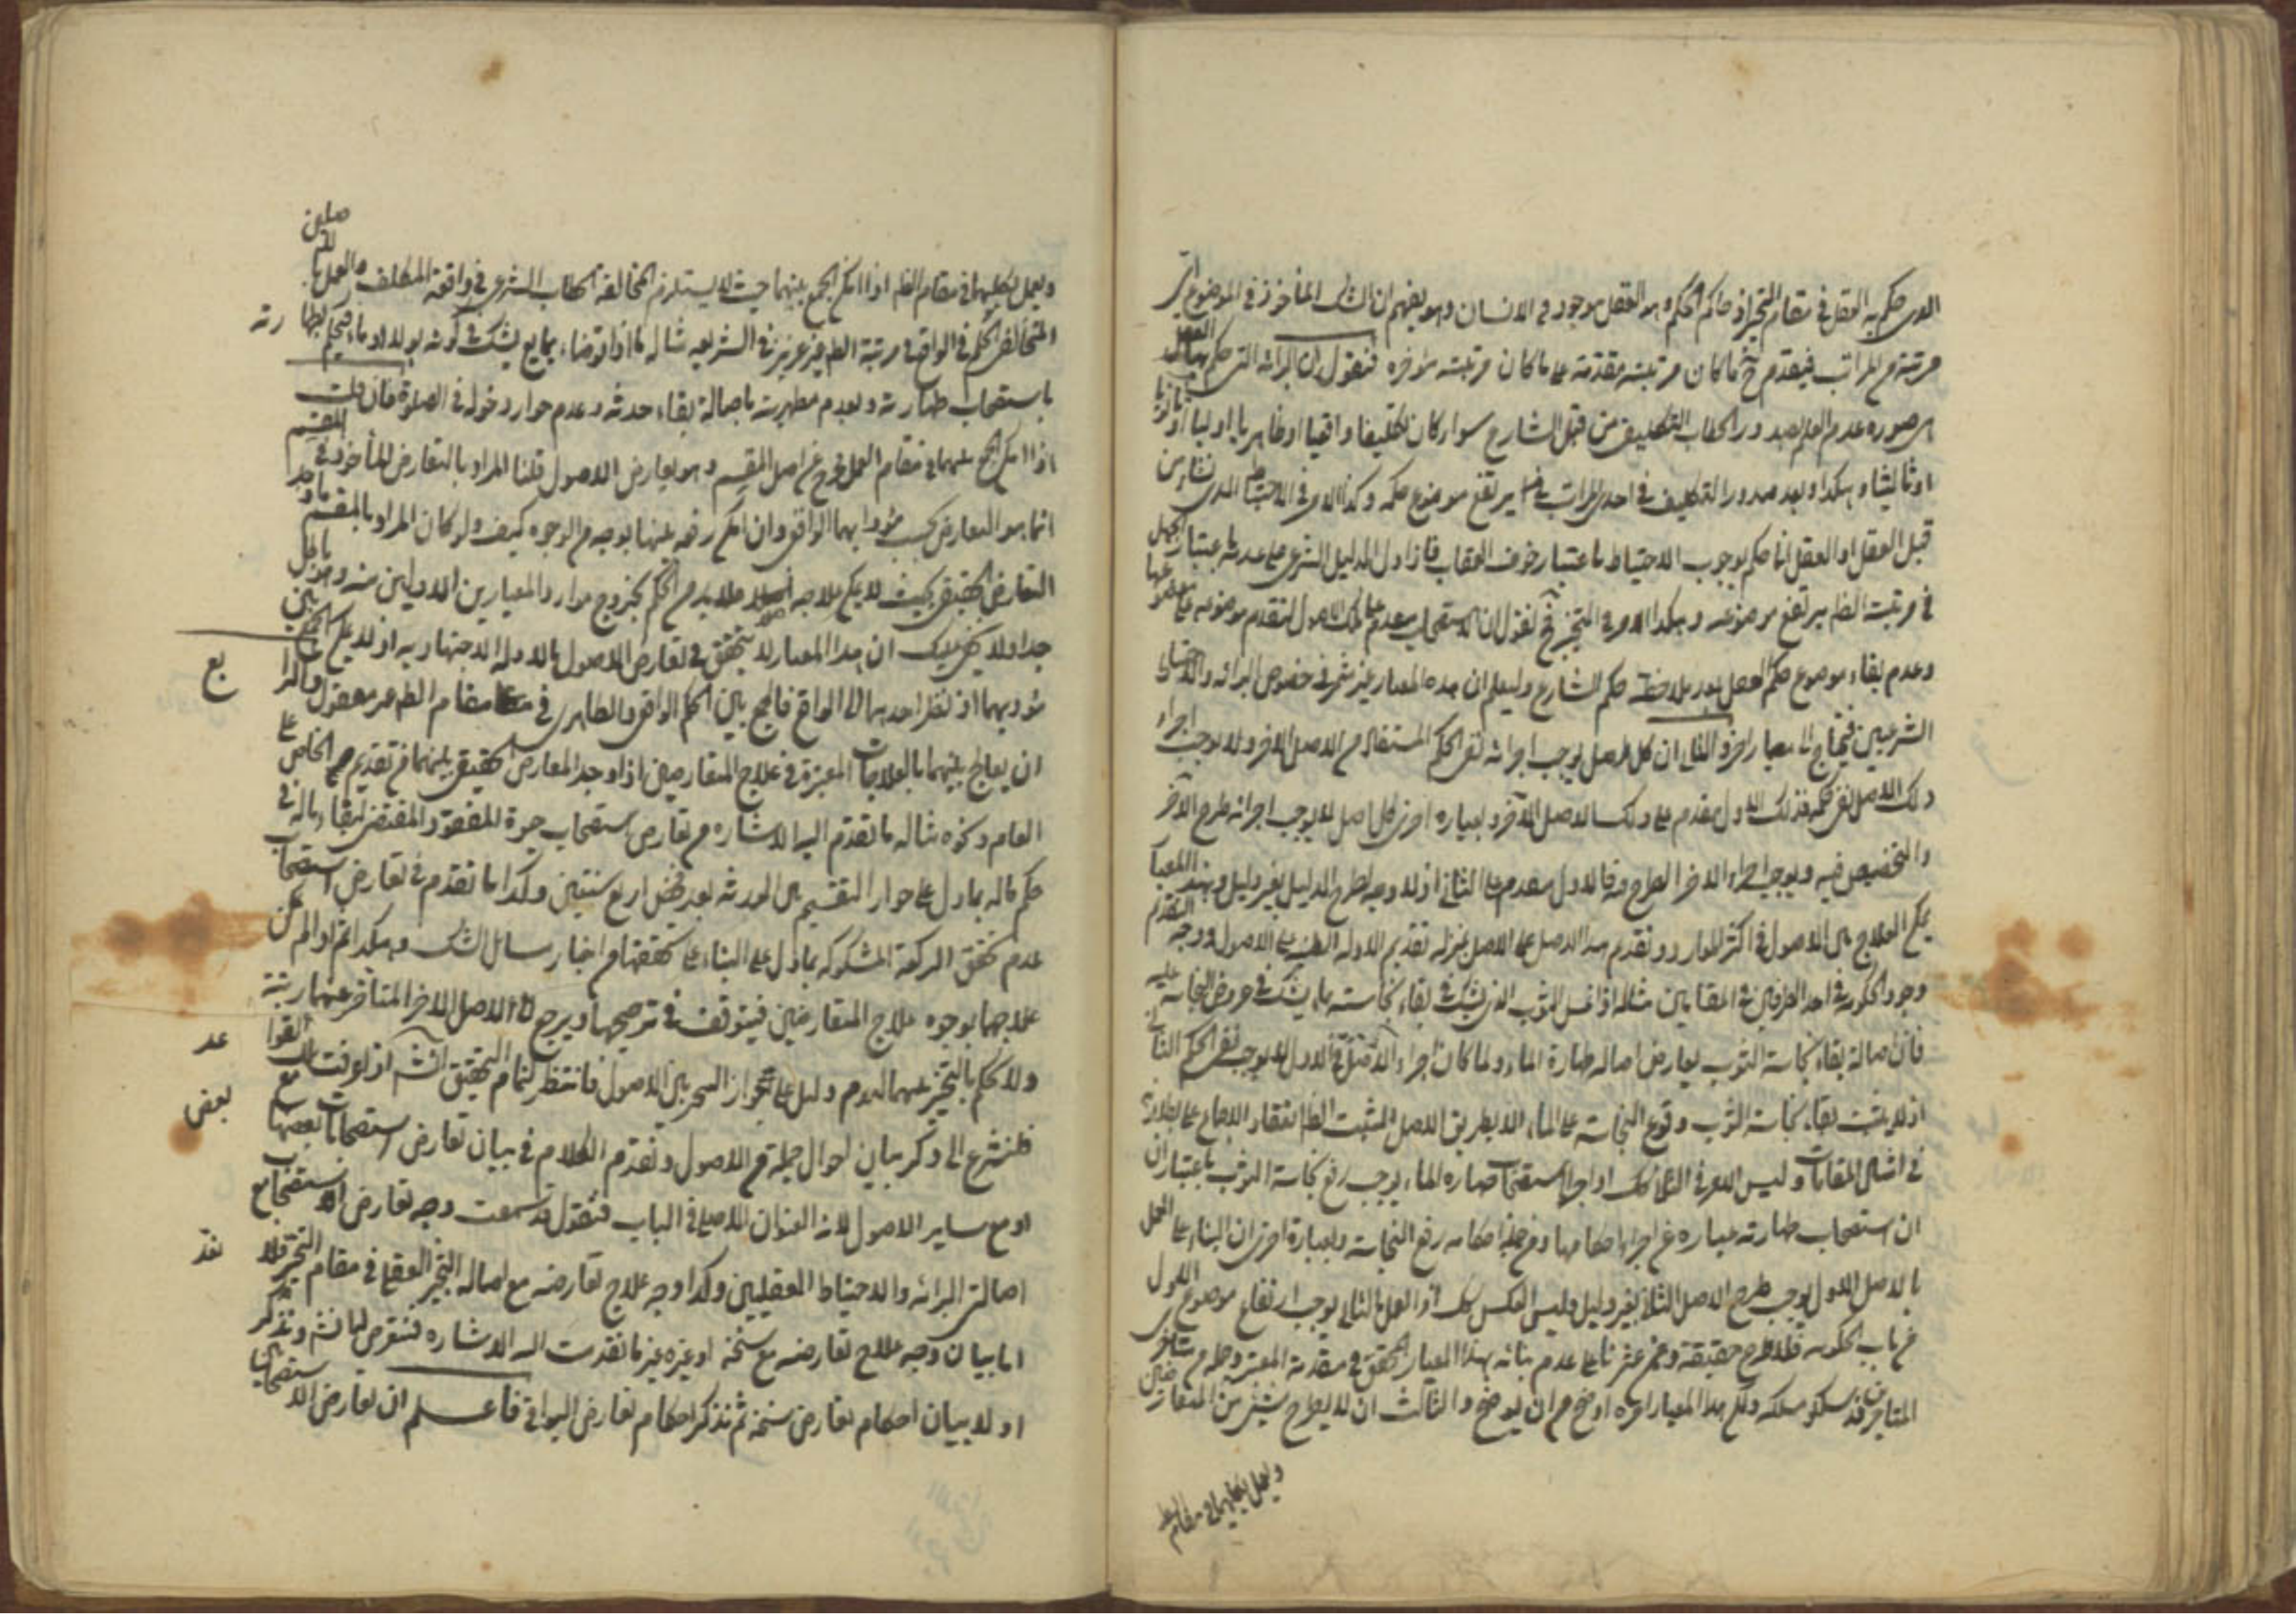 الذى حكم به العقل فى مقام التخير اذ حاكم الحكم هو العقل موجود فى الانسان وهو يفهم ان الشك المأخوذ فى الموضوع اى
مرتبة من المراتب فيقدم ح ما كان مرتبته مقدمة على ما كان مرتبته مؤخره فنقول ان البرائه التى حكم بها العقل
هى صوره عدم العلم بصدور الخطاب التكليفى من قبل الشارع سواء كان تكليفا واقعيا او ظاهريا اوليا او ثانويا
او ثالثيا وهكذا وبعد صدور التكليف فى احدى المراتب يرتفع موضوع حكمه وكذا الامر فى الاحتياط الذى نشاء من
قبل العقل او العقل انما حكم بوجوب الاحتياط باعتبار خوف العقاب فاذا دل الدليل الشرعى على عدمه باعتبار الجهل
فى مرتبة الظاهر يرتفع موضوعه وهكذا الامر فى التخير فح نقول ان الاستصحاب مقدم على تلك الاصول لتقدم موضوعه على موضوعها
وعدم بقاء موضوع حكم العقل بعد ملاحظة حكم الشارع وليعلم ان هذه المعيار غير مثمر فى خصوص البرائه والاحتياط
الشرعيين فيحتاج الى معيار اخر والثانى ان كل اصل يوجب اجرائه نفى الحكم المستفاد من الاصل الاخر ولا يوجب اجراء
ذلك الاصل نفى حكمه فذلك الاول مقدم على ذلك الاصل الاخر وبعباره اخرى كل اصل لا يوجب اجرائه طرح الاخر
والتخصيص فيه ويوجب اجراء الاخر الطرح فيه فالاول مقدم على الثانى اذ لا وجه لطرح الدليل بغير دليل وبهذا المعيار
يمكن العلاج بين الاصول فى اكثر الموارد وتقدم هذا الاصل على الاصل بمنزله تقديم الادله الظنيه على الاصول ووجه التقدم
وجود الحكومة فى احد الطرفين فى المقابلين مثلا اذا غسل الثوب الذى يشك فى بقاء نجاسته بماء يشك فى عروض النجاسة عليه
فان اصالة بقاء نجاسة الثوب يعارض اصاله طهارة الماء ولما كان اجراء الاصل الاول لا يوجب نفى الحكم الثانى
اذ لا يثبت بقاء نجاسة الثوب وقوع النجاسة على الماء الا بطريق الاصل المثبت انعقاد الاجماع على بطلانه
فى امثال المقامات وليس الامر فى الثانى كك اذ اجراء استصحاب طهارة الماء يوجب رفع نجاسة الثوب باعتبار ان
ان استصحاب طهارته عباره عن اجراء احكامها ومن جملة احكامه رفع النجاسة وبعبارة اخرى ان البناء على العمل
بالاصل الاول يوجب طرح الاصل الثانى بغير دليل وليس العكس كك اذ العمل بالثانى يوجب ارتفاع موضوع الاول
من باب الحكومه فلا طرح حقيقة وممن عثرنا على عدم بنائه بهذا المعيار المحقق فى مقدمة المعتبر وجملة من متأخرى
المتأخرين قد سلكو مسلكه ولكن هذا المعيار اوضح من ان يوضح والثالث ان لا يطرح شيئ من المتعارضين
ويعمل بكليهما فى مقام الظاهر
ويعمل بكليهما فى مقام الظاهر اذا امكن الجمع بينهما حيث لا يستلزم المخالفة لخطاب الشرعى فى واقعة المكلف والعمل بالاصلين
المتخالفى الحكم فى الواقع فى مرتبة الظاهر غير عزيز فى الشريعه مثاله ما اذا توضاء بمايع يشك فى كونه بولا او ماء فيحكم بطهارته
باستصحاب طهارته وبعدم مطهريته باصالة بقاء حدثه وعدم جواز دخوله فى الصلوة فان قلت
اذا امكن الجمع بينهما فى مقام العمل خرج عن اصل المقسم وهو تعارض الاصول قلنا المراد بالتعارض المأخوذ فى المقسم
انما هو التعارض بحسب مؤداهما الواقعى وان امكن رفعه عنها بوجه من الوجوه كيف ولو كان المراد بالمقسم ما وجد
التعارض الحقيقى بحيث لا يمكن علاجه اصلا فلا بد من الحكم بخروج موارد المعيارين الاولين منه وهو باطل
جدا ولا يخفى عليك ان هذا المعيار لا يتحقق فى تعارض الاصول بالادلة الاجتهاديه اذ لا يمكن الجمع بين
مؤديهما اذ نظر احدهما الى الواقع فالجمع بين الحكم الواقعى والظاهرى فى مقام الظاهر غير معقول والرابع
ان يعالج بينهما بالعلاجات المعتبرة فى علاج المتعارضين اذا وجد المعارض الحقيقى بينهما من تقديم الخاص على
العام ونحوه مثاله ما تقدم اليه الاشاره من تعارض استصحاب حيوة المفقود المقتضى لبقاء ماله فى
حكم ماله بما دل على جواز التقسيم بين الورثه بعد مضى اربع سنين وكذا ما تقدم فى تعارض استصحاب
عدم تحقق الركعة المشكوكه بما دل على البناء على تحققها من اخبار مسائل الشك وهكذا ثم اذا لم يمكن
علاجها بوجوه علاج المتعارضين فيتوقف فى ترجيحها ويرجع الى الاصل الاخر المتأخر عنها رتبة
ولا يحكم بالتخير بينهما لعدم دليل على جواز التخير بين الاصول فانتظر لتمام التحقيق انشه اذا عرفت القواعد
فلنشرع الى ذكر بيان احوال جملة من الاصول وتقدم الكلام فى بيان تعارض استصحابات بعضها مع بعض
او مع ساير الاصول لانه العنوان للاصل فى الباب فنقول قد سمعت وجه تعارض الاستصحاب مع
اصالتى البرائه والاحتياط العقليين وكذا وجه علاج تعارضه مع اصاله التخير العقلى فى مقام التخير فلا نعد
اما بيان وجه علاج تعارضه مع سنخه او غيره غير ما تقدمت اليه الاشاره فنتعرض لها انشه ونذكر
اولا بيان احكام تعارض سنخه ثم نذكر احكام تعارض البواقى فاعلم ان تعارض الاستصحابين